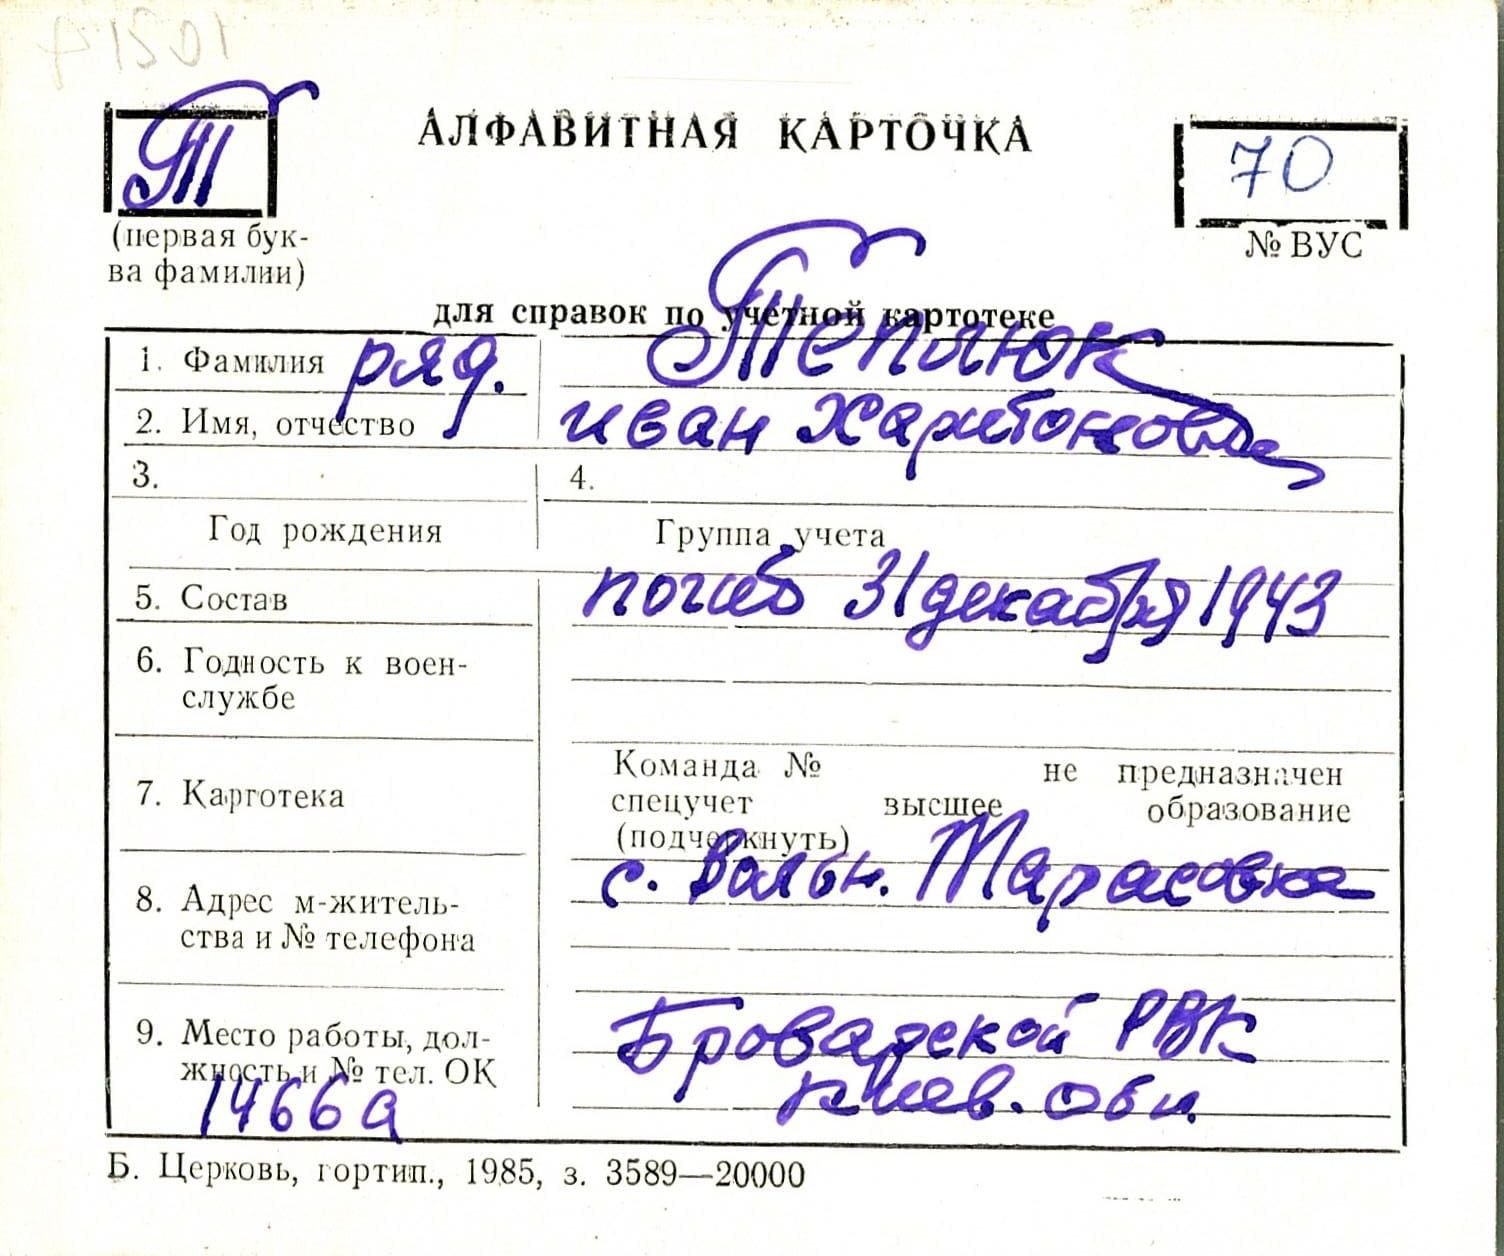 А1501
Т
АЛФАВИТНАЯ КАРТОЧКА
70
(первая бук-
ва фамилии)
№ ВУС
для справок по учетной картотеке
1. Фамилия ряд. Теплюк
2. Имя, отчество Иван Харитонович
3.
4.
Год рождения
Группа учета
5. Состав погиб 31 декабря 1943
6. Годность к воен-
службе
7. Картотека
Команда № не предназначен
спецучет высшее образование
(подчеркнуть)
8. Адрес м-житель- с. Вольн. Тарасовка
ства и № телефона
9. Место работы, дол- Броварской РВК
жность и № тел. ОК Киев. обл.
1466а
Б. Церковь, гортип., 1985, з. 3589—20000